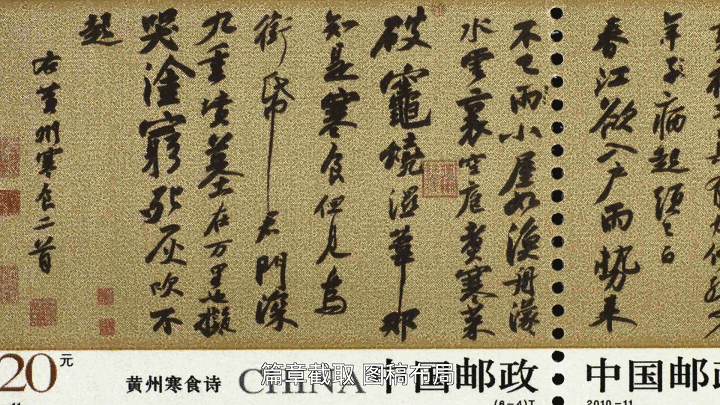 年子病起須已白
春江欲入户雨勢来
不已雨小屋如漁舟濛
水雲裏空庖煮寒菜
破竈燒濕葦那
知是寒食但見烏
銜帋君門深
九重墳墓在万里也擬
哭塗窮死灰吹不
起
右黄州寒食二首
20元
黄州寒食诗
CHINA 中国邮政
(6-4)T
中国邮
2010-11
篇章截取 图稿布局